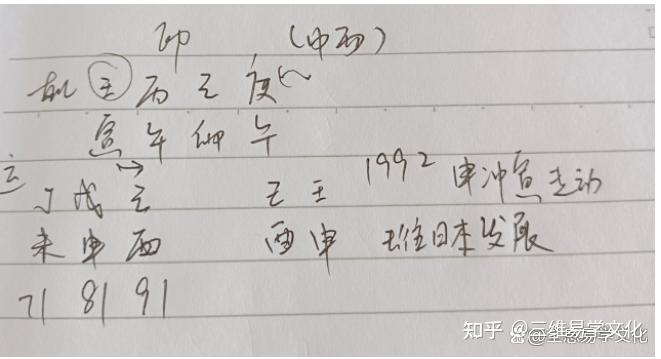 印 （申酉）
乾 壬 丙 己 庚
寅 午 卯 午
运 丁 戊 己 己 壬 1992 申冲寅走动
未 申 酉 酉 申 往日本发展
71 81 91
知乎 @三维易学文化